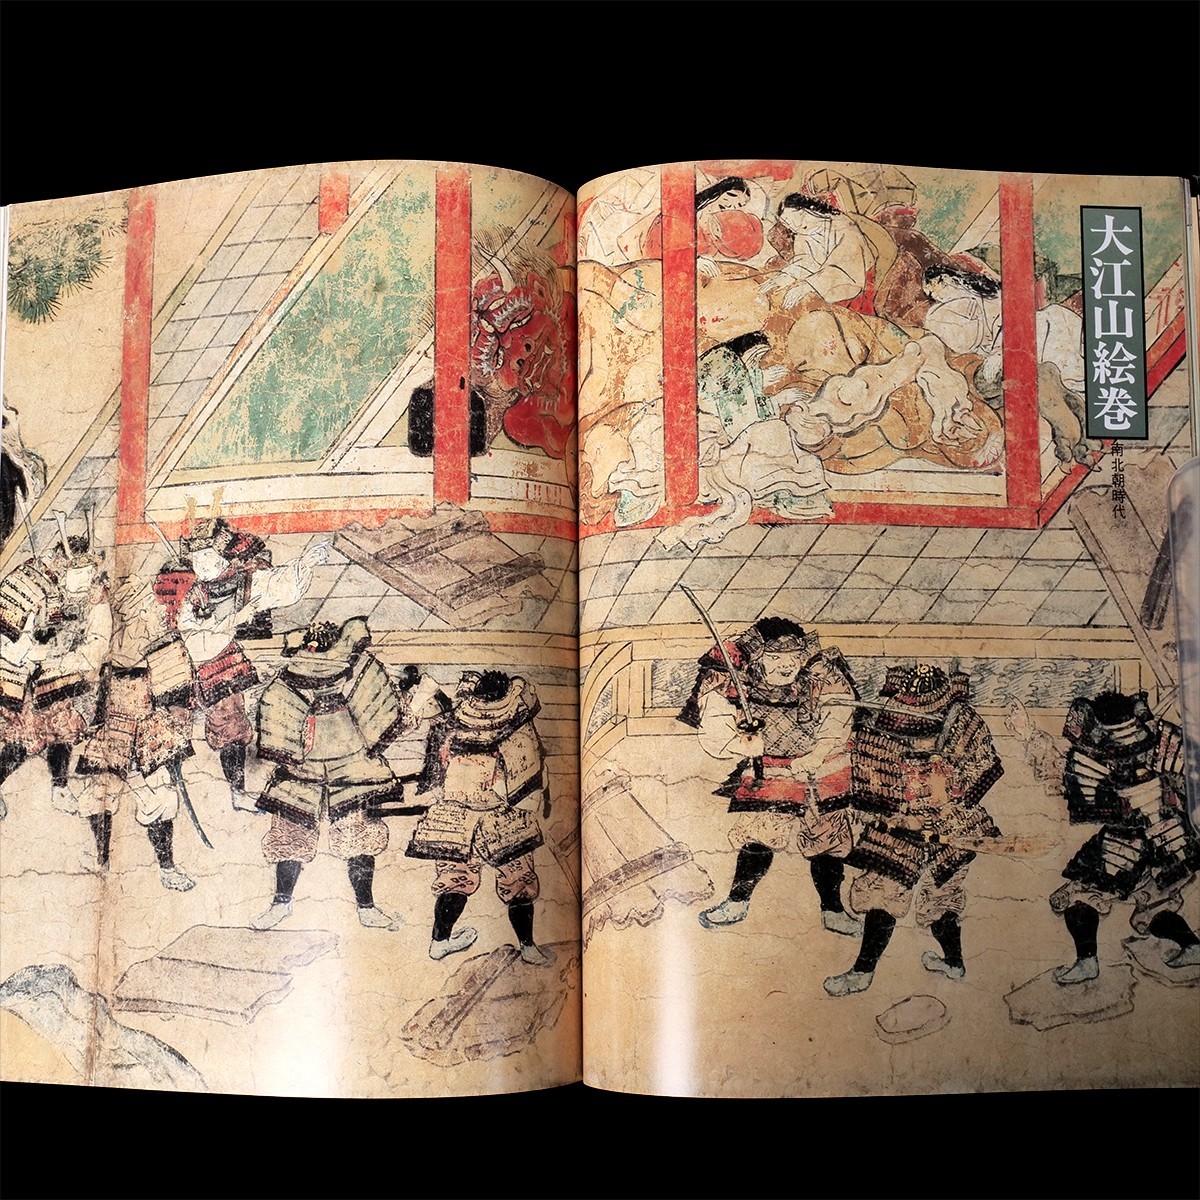 大江山絵巻
南北朝時代